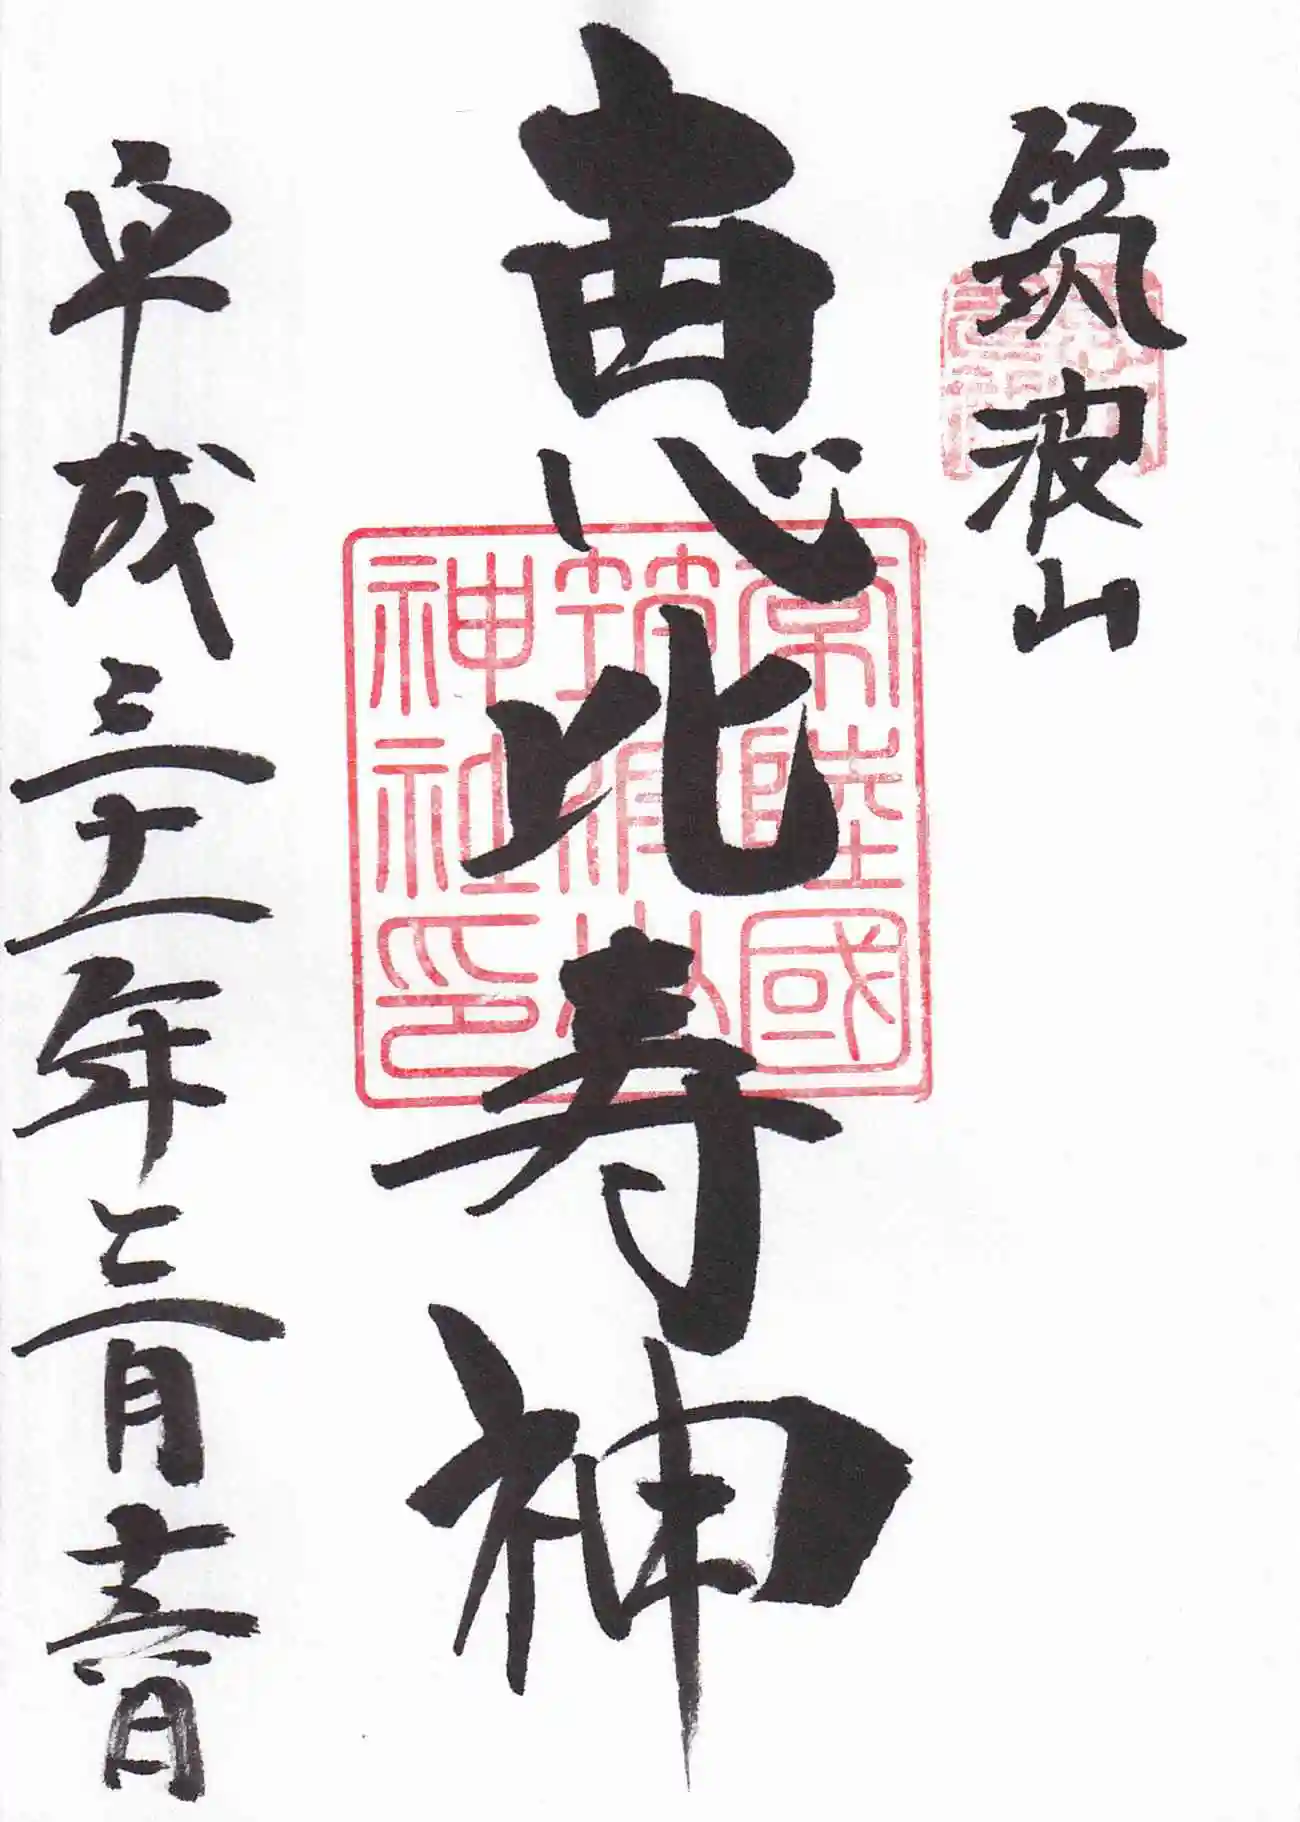 筑波山
恵比寿神
常陸國
筑波山
神社印
平成三十一年三月十三日